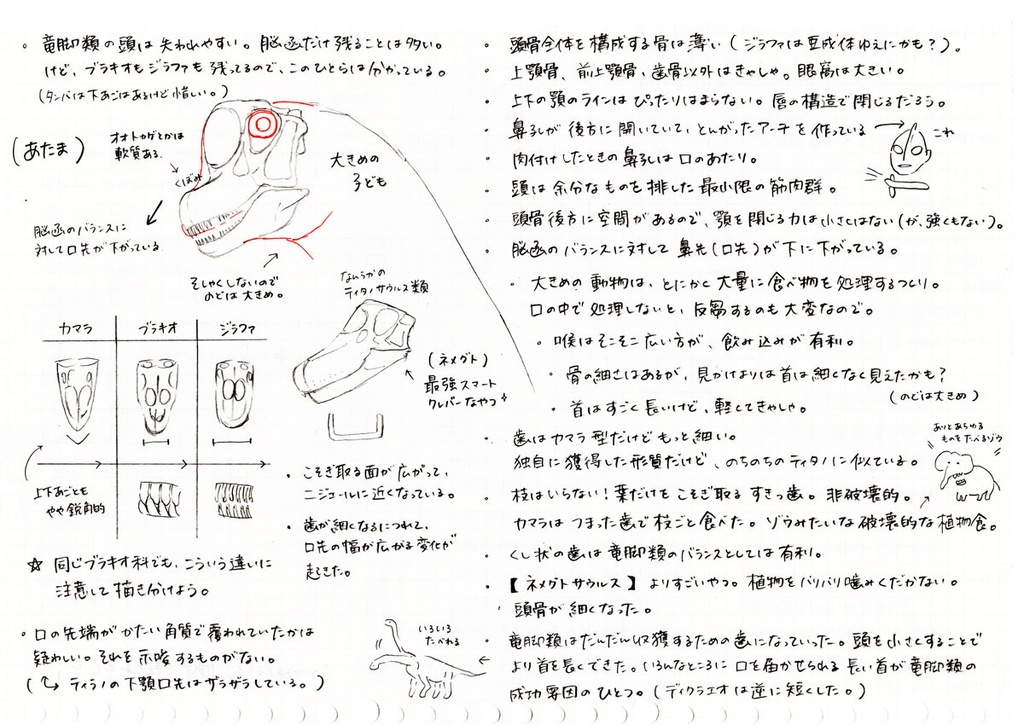 ・竜脚類の頭は失われやすい。脳函だけ残ることは多い。
けど、ブラキオもジラファも残ってるので、このひとらは分かっている。
(タンバは下あごはあるけど惜しい。)
(あたま)
オオトカゲとかは
軟質ある。
くぼみ
大きめの
子ども
脳函のバランスに
対して口先が下がっている
そしゃくしないので
のどは大きめ。
なんらかの
ティタノサウルス類
(ネメグト)
最強スマート
クレバーなやつ
カマラ
ブラキオ
ジラファ
上下あごとも
やや鋭角的
・こそぎ取る面が広がって、
ニジェールに近くなっている。
・歯が細くなるにつれて、
口先の幅が広がる変化が
起きた。
☆ 同じブラキオ科でも、こういう違いに
注意して描き分けよう。
・口の先端がかたい角質で覆われていたかは
疑わしい。それを示唆するものがない。
(↪ ティラノの下顎口先はザラザラしている。)
いろいろ
たべれる
・頭骨全体を構成する骨は薄い(ジラファは亜成体ゆえにかも?)。
・上顎骨、前上顎骨、歯骨以外はきゃしゃ。眼窩は大きい。
・上下の顎のラインはぴったりはまらない。唇の構造で閉じるだろう。
・鼻孔が後方に開いていて、とんがったアーチを作っている
これ
・肉付けしたときの鼻孔は口のあたり。
・頭は余分なものを排した最小限の筋肉群。
・頭骨後方に空間があるので、顎を閉じる力は小さくはない(が、強くもない)。
・脳函のバランスに対して鼻先(口先)が下に下がっている。
・大きめの動物は、とにかく大量に食べ物を処理するつくり。
口の中で処理しないと、反芻するのも大変なので。
・喉はそこそこ広い方が、飲み込みが有利。
・骨の細さはあるが、見かけよりは首は細くなく見えたかも?
(のどは大きめ)
・首はすごく長いけど、軽くてきゃしゃ。
・歯はカマラ型だけどもっと細い。
独自に獲得した形質だけど、のちのちのティタノに似ている。
ありとあらゆる
ものをたべるゾウ
・枝はいらない!葉だけをこそぎ取るすきっ歯。非破壊的。
カマラはつまった歯で枝ごと食べた。ゾウみたいな破壊的な植物食。
・くし状の歯は竜脚類のバランスとしては有利。
・【ネメグトサウルス】よりすごいやつ。植物をバリバリ噛みくだかない。
頭骨が細くなった。
・竜脚類はだんだん収獲するための歯になっていった。頭を小さくすることで
より首を長くできた。いろんなところに口を届かせられる長い首が竜脚類の
成功要因のひとつ。(ディクラエオは逆に短くした。)